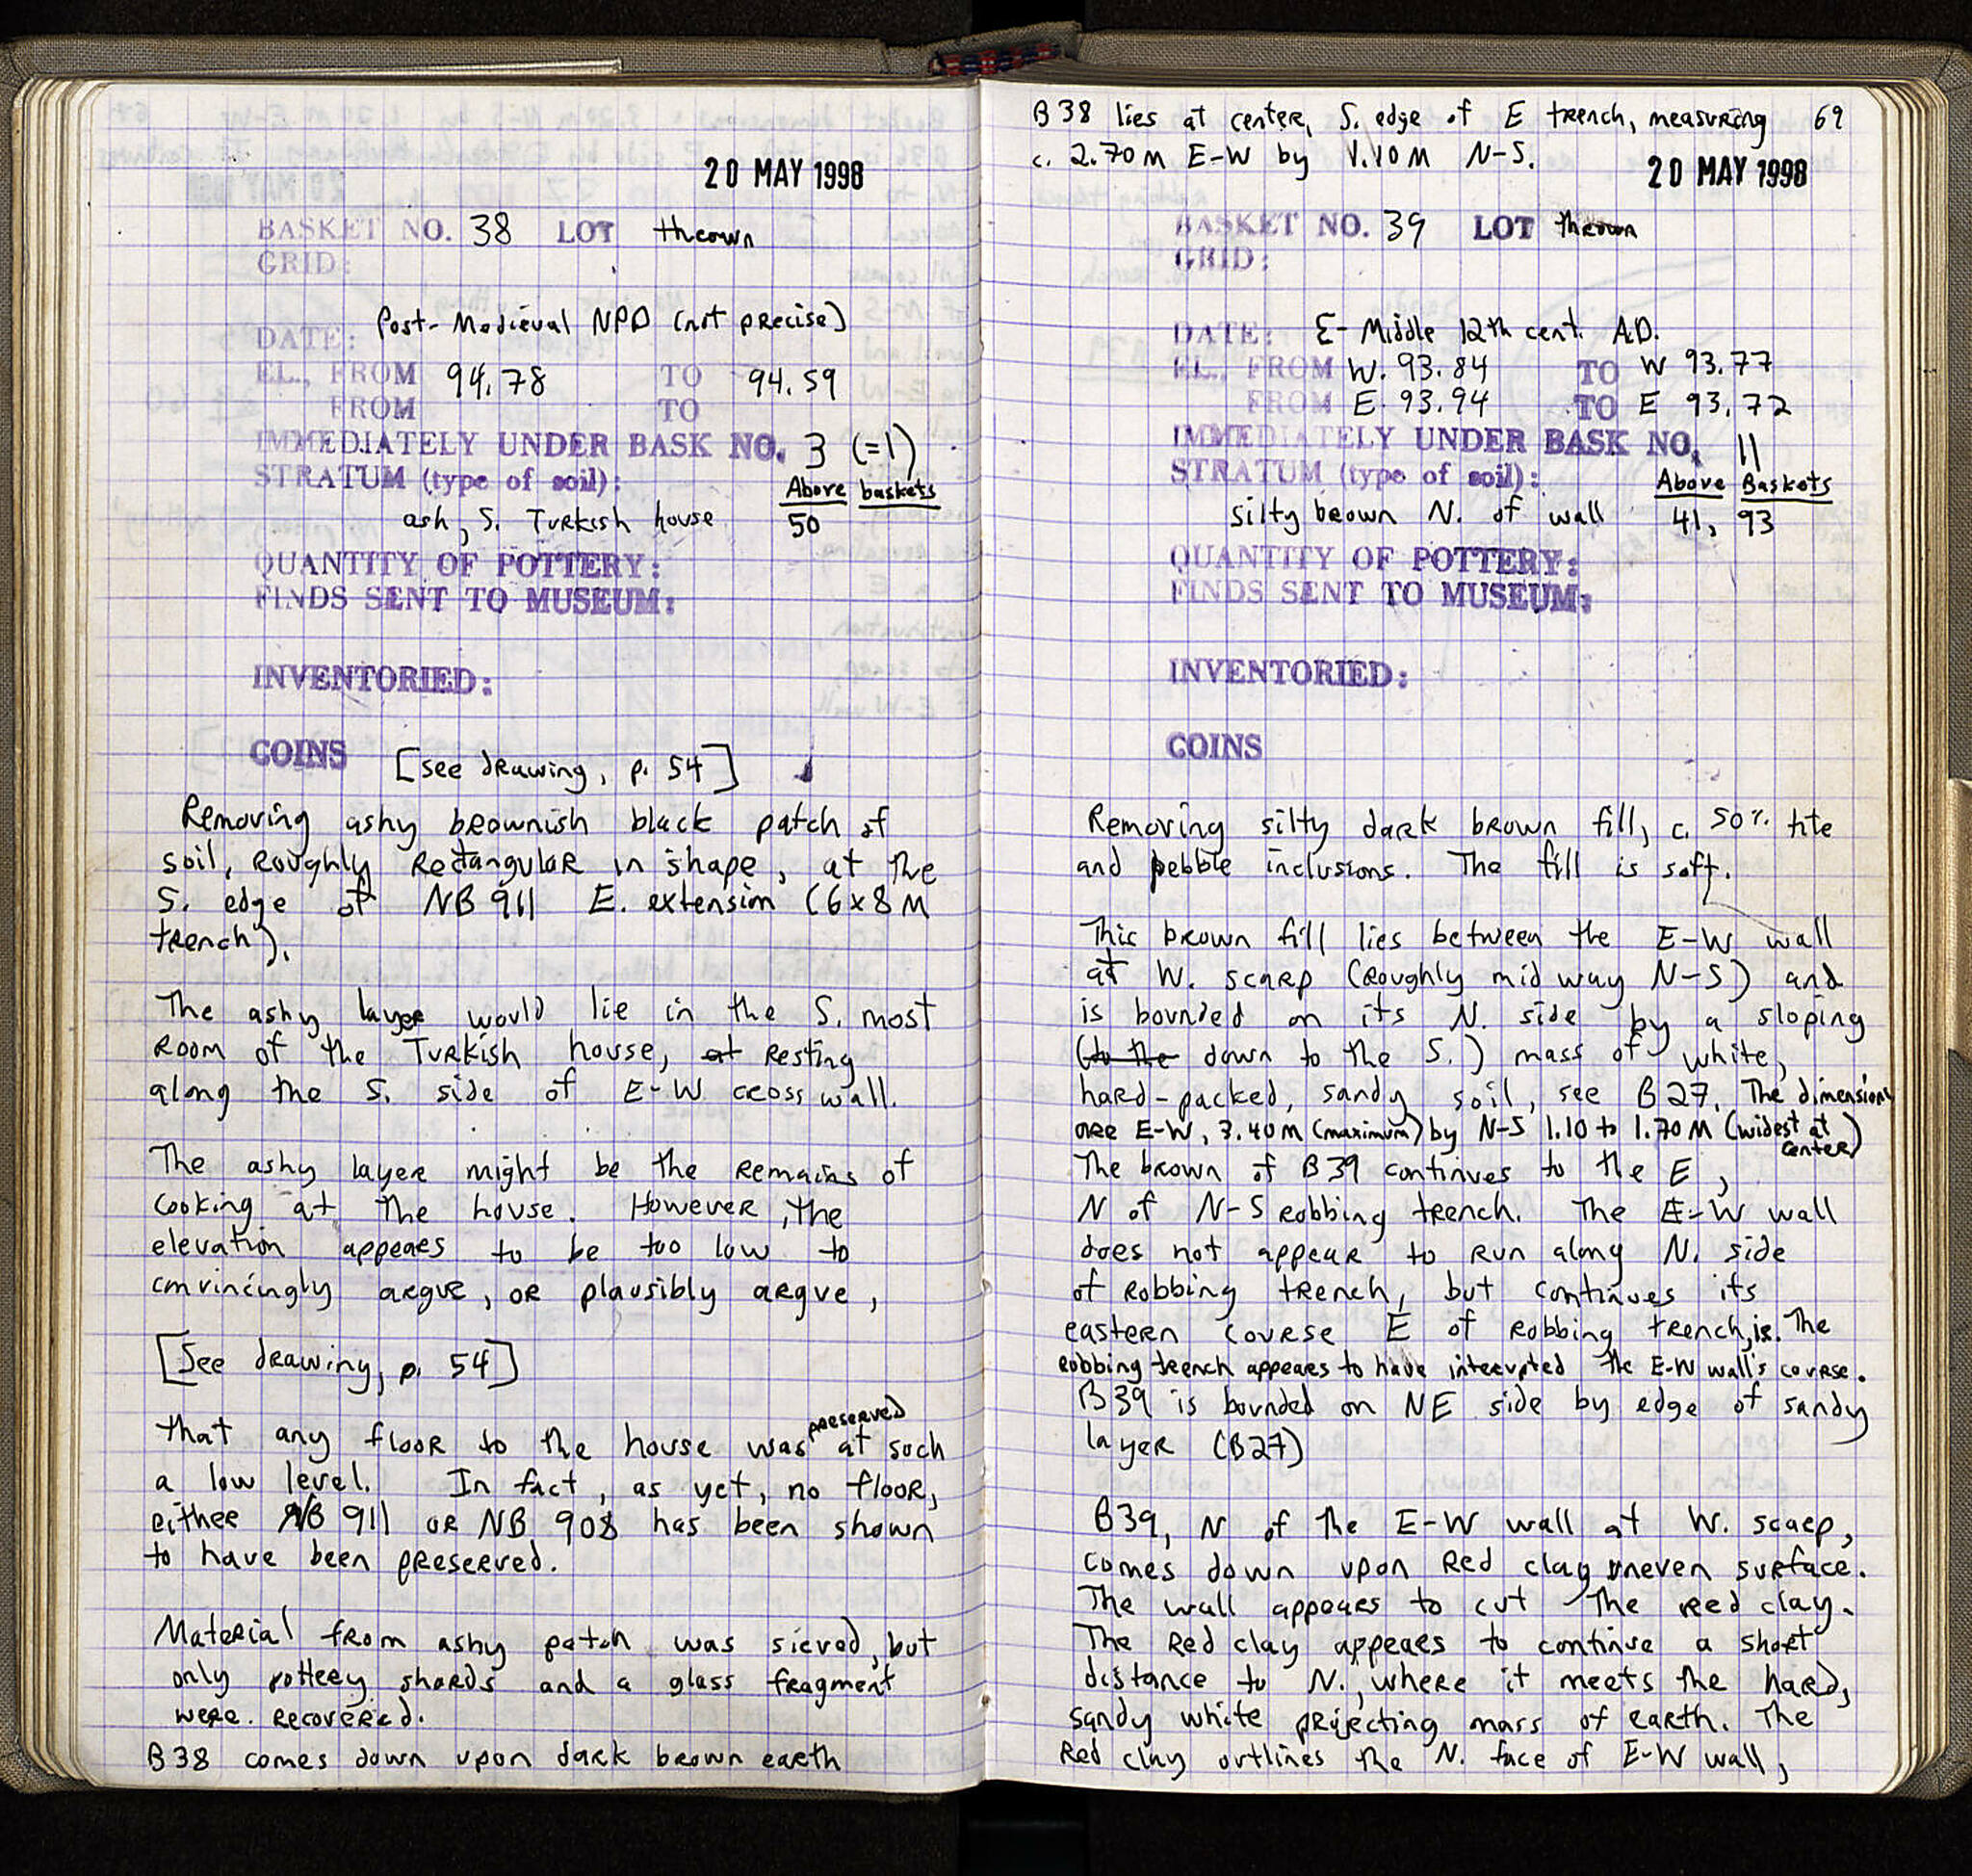 20 MAY 1998
BASKET NO. 38 LOT thrown
GRID:
DATE: Post-Medieval NPD (not precise)
EL., FROM 94.78 TO 94.59
FROM TO
IMMEDIATELY UNDER BASK NO. 3 (=1)
STRATUM (type of soil): Above baskets
ash, S. Turkish house 50
QUANTITY OF POTTERY:
FINDS SENT TO MUSEUM:
INVENTORIED:
COINS [see drawing, p. 54]
Removing ashy brownish black patch of
soil, roughly rectangular in shape, at the
S. edge of NB 911 E. extension (6x8 m
trench).
The ashy layer would lie in the S. most
room of the Turkish house, at resting
along the S. side of E-W cross wall.
The ashy layer might be the remains of
cooking at the house. However, the
elevation appears to be too low to
convincingly argue, or plausibly argue,
[See drawing, p. 54]
that any floor to the house was preserved at such
a low level. In fact, as yet, no floor,
either NB 911 or NB 908 has been shown
to have been preserved.
Material from ashy patch was sieved, but
only pottery shards and a glass fragment
were recovered.
B38 comes down upon dark brown earth
B38 lies at center, S. edge of E trench, measuring 69
c. 2.70 m E-W by 1.10 m N-S.
20 MAY 1998
BASKET NO. 39 LOT thrown
GRID:
DATE: E-Middle 12th cent. A.D.
EL., FROM W. 93.84 TO W 93.77
FROM E. 93.94 TO E 93.72
IMMEDIATELY UNDER BASK NO. 11
STRATUM (type of soil): Above Baskets
silty brown N. of wall 41, 93
QUANTITY OF POTTERY:
FINDS SENT TO MUSEUM:
INVENTORIED:
COINS
Removing silty dark brown fill, c. 50% tile
and pebble inclusions. The fill is soft.
This brown fill lies between the E-W wall
at W. scarp (roughly mid way N-S) and
is bounded on its N. side by a sloping
(to the down to the S.) mass of white,
hard-packed, sandy soil, see B27. The dimensions
are E-W, 3.40 m (maximum) by N-S 1.10 to 1.70 m (widest at
center)
The brown of B39 continues to the E,
N of N-S robbing trench. The E-W wall
does not appear to run along N. side
of robbing trench, but continues its
eastern course E of robbing trench, ie. The
robbing trench appears to have interrupted the E-W wall's course.
B39 is bounded on NE side by edge of sandy
layer (B27)
B39, N of the E-W wall at W. scarp,
comes down upon red clay uneven surface.
The wall appears to cut the red clay.
The red clay appears to continue a short
distance to N., where it meets the hard,
sandy white projecting mass of earth. The
red clay outlines the N. face of E-W wall,